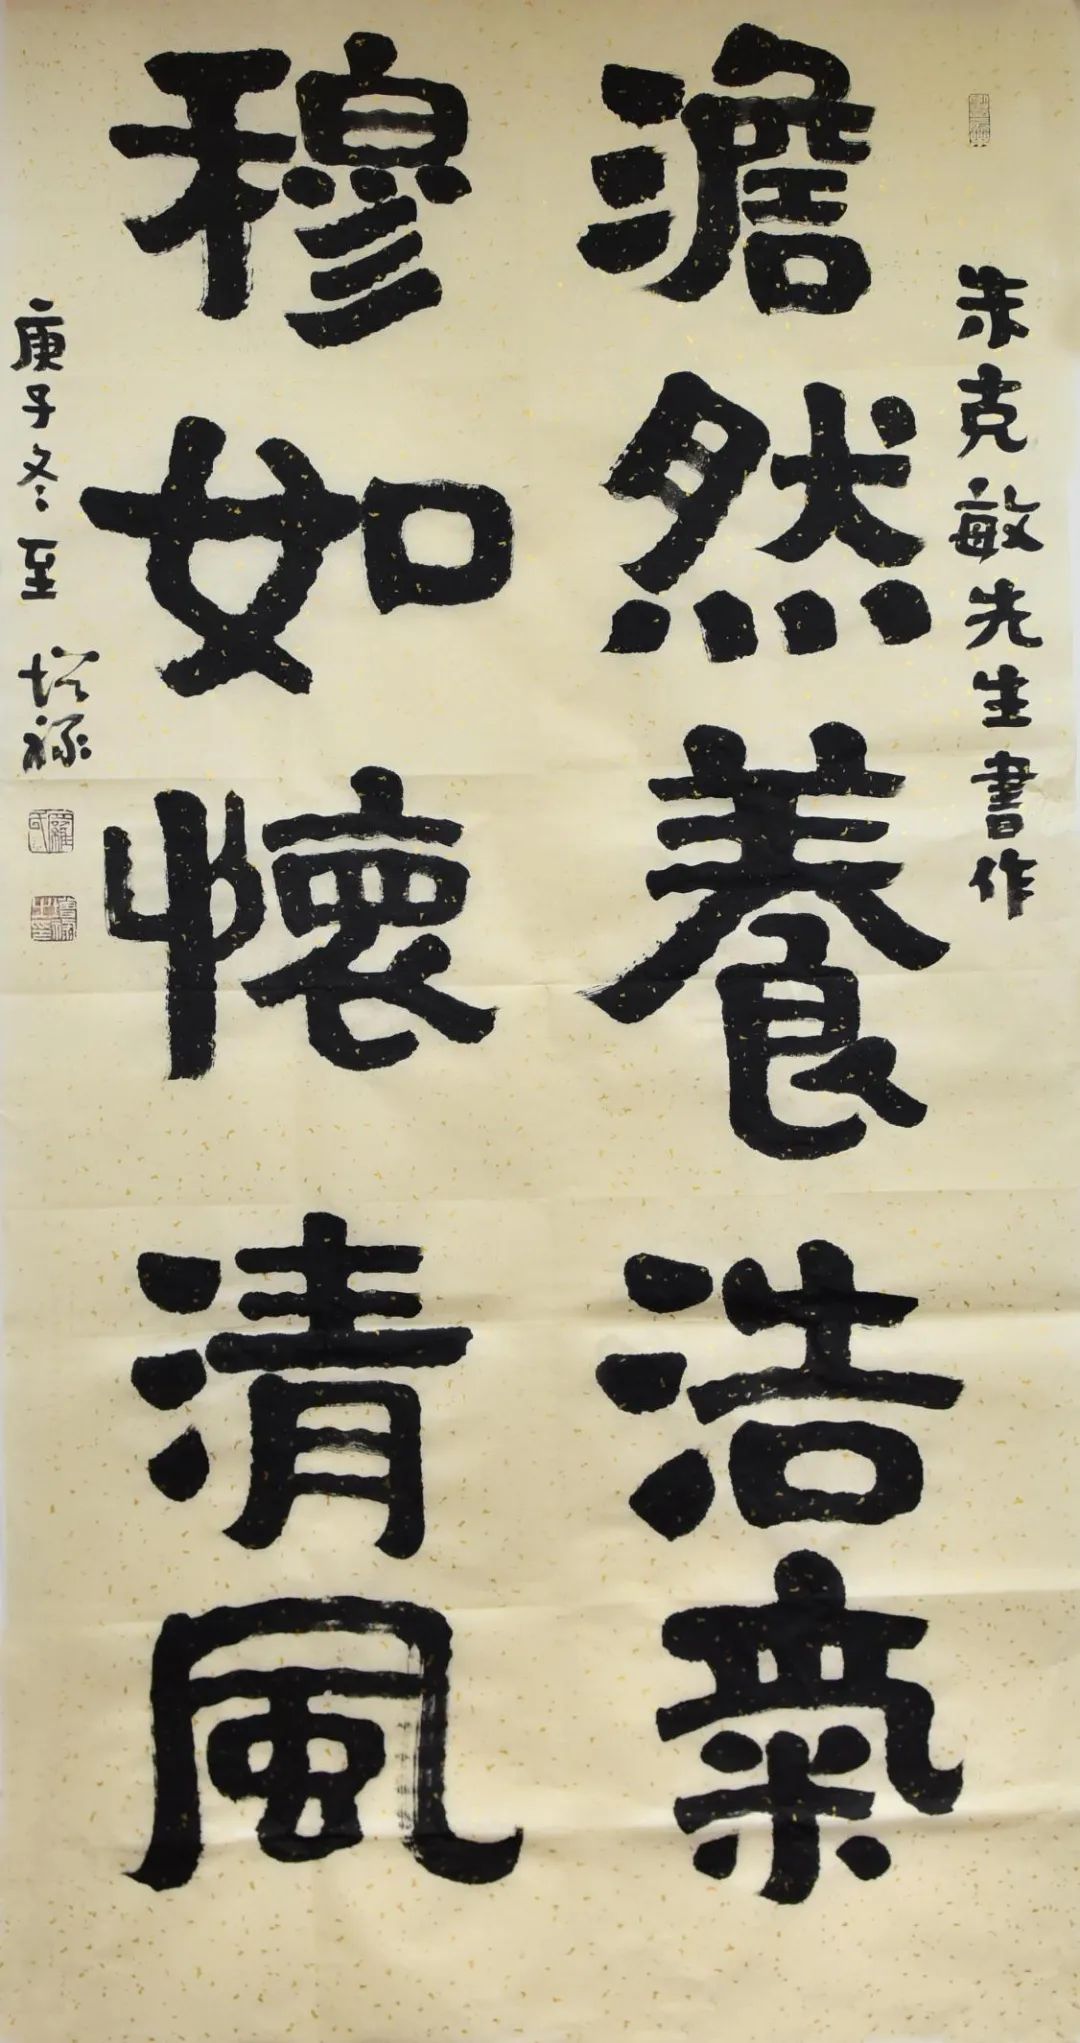 朱克敏先生書作
澹然養浩氣
穆如懷清風
庚子冬至